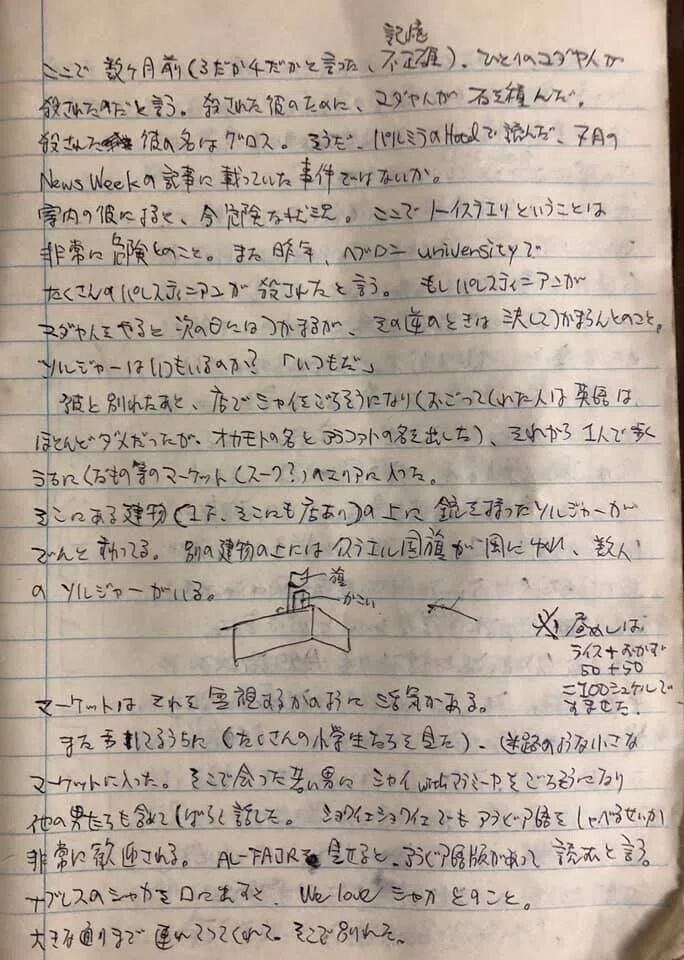 記憶
ここで 数ヶ月前(3だか4だかと言った、不正確)、ひとりのユダヤ人が
殺されたのだと言う。殺された彼のために、ユダヤ人が 石を積んだ。
殺された 彼の名はグロス。そうだ、パルミラのHotelで読んだ、7月の
News Weekの記事に載っていた事件ではないか。
案内の彼によると、今危険な状況。ここで イスラエリということは
非常に危険とのこと。また 昨年、ヘブロン universityで
たくさんのパレスティニアンが 殺されたと言う。もしパレスティニアンが
ユダヤ人をやると 次の日にはつかまるが、その逆のときは 決してつかまらんとのこと。
ソルジャーはいつもいるのか?「いつもだ」
彼と別れたあと、店でシャイをごちそうになり(おごってくれた人は 英語は
ほとんどダメだったが、オカモトの名とアラファトの名を出した)、それから 1人で歩く
うちにくだもの等のマーケット(スーク?)のエリアに入った。
そこにある建物(1F、そこにも店あり)の上に 銃を持ったソルジャーが
でんと 別の建物の上には イスラエル国旗が 数人
の ソルジャーがいる。
旗
かこい
昼めしは
ライス+おかず
50+50
=100シュケルで
すませた。
マーケットは それを 無視するかのように 活気がある。
また 歩いてるうちに(たくさんの小学生たちを見た)、迷路のような小さな
マーケットに入った。そこで会った若い男に シャイ withマラミーヤをごちそうになり
他の男たちも含めて しばらく話した。ショワイエショワイエでも アラビア語を しゃべるせいか
非常に歓迎される。AL-FAJRを 見せると、アラビア語版があって 読むと言う。
ナブレスのシャカを口に出すと、We love シャカ とのこと。
大きな通りまで 連れてってくれて、そこで別れた。